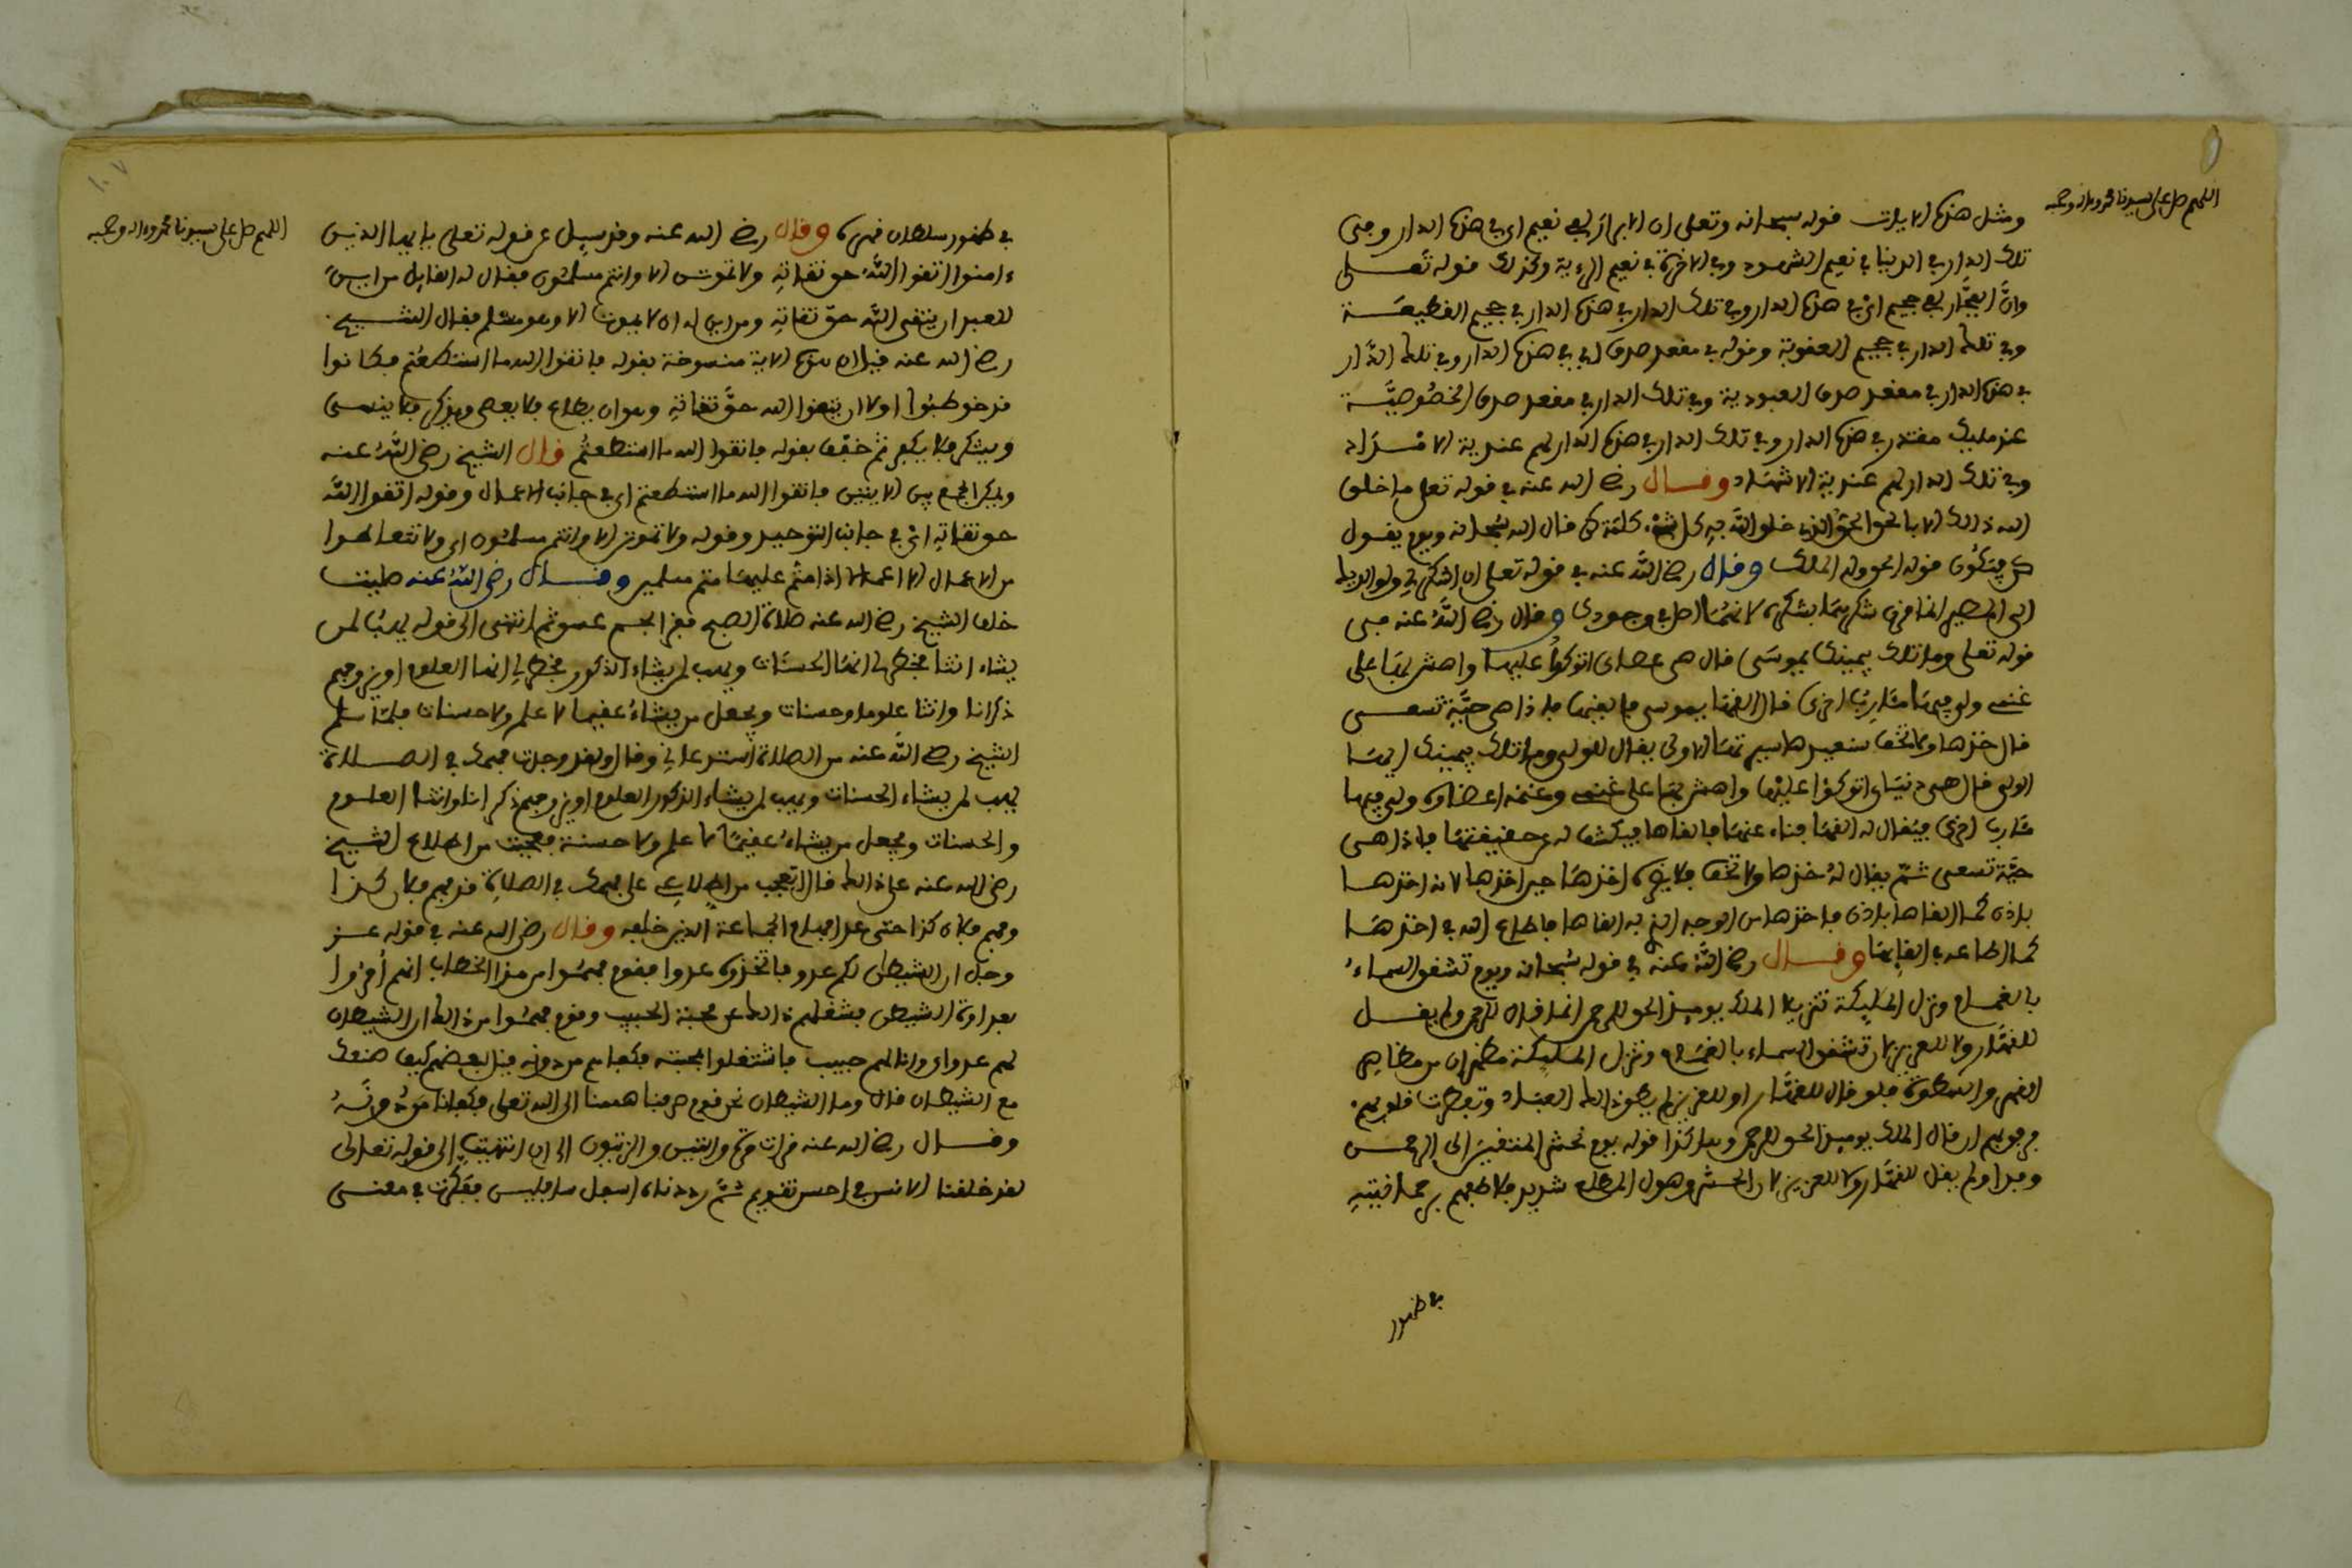 اللهم صل على سيدنا محمد وءاله وصحبه
ومثل هذه الايات قوله سبحانه وتعلى ان الابرار لفي نعيم اي في هذه الدار وفي
تلك الدار في الدنيا في نعيم الشهود وفي الاخرة في نعيم الرءية وكذلك قوله تعلى
وانَّ الفجَّار لفي جحيم اي في هذه الدار وفي تلك الدار في هذه الدار في جحيم القطيعة
وفي تلك الدار في جحيم العقوبة وقوله في مقعد صدق اي في هذه الدار وفي تلك الدَّار
في هذه الدار في مقعد صدق العبودية وفي تلك الدار في مقعد صدق الخصُوصيَّة
عند مليك مقتدر في هذه الدار وفي تلك الدار في هذه الدار لهم عندية الامْدَاد
وفي تلك الدار لهم عندية الاشهَاد وقال رضي الله عنه في قوله تعلى ما خلق
الله ذلك الا بالحق الحقُّ الذي خلق اللَّه به كل شيْء كلمَة كن قال الله سُبحانه ويوم يقول
كن فيَكُون قوله الحق وله الملك وقال رضي اللَّه عنه في قوله تعلى ان اشكر لي ولوالديك
الي المصير انما قرن شكرهمَا بشكره لانهُمَا اصل في وجودك وقال رضي اللَّهُ عنه في
قوله تعلى وما تلك بيمينك يموسَى قال هي عصاي اتوكؤُا عليهَا واهش بهَا على
غنمي ولي فيهَا مئَارِبُ اخرى قال القهَا يموسى فالقيها فاذا هي حيَّة تسعى
قال خذها ولا تخف سنعيدها سيرتهَا الاولى يقال للولي وما تلك بيمينك ايهَا
الولي قال هي دنيَاي اتوكؤا عليْها واهش بهَا على غنمي وغنمه اعضاؤه ولي فيها
مئَارب اخرى فيُقال له القهَا فناء عنهَا فالقاها فيكشف له عن حقيقتهَا فاذا هي
حيَّة تسعى ثمّ يقال لهُ خذها ولا تخف فلا يضره اخذهَا حين اخذها لانه اخذها
باذن كما القاها باذن فاخذها من الوجه الذي به القاها فاطاع الله في اخذهَا
كما اطاعه في القايهَا وقال رضي اللَّهُ عنه في قوله سُبحانه ويوم تشقق السماءُ
بالغمام ونزل المليكة تنزيلا الملك يوميذ الحق للرحمن انما قال للرحمن ولم يقل
للقهَّار ولا للعزيز لان تشقق السماء بالغمَام ونزول المليكة مظهران من مظاهر
القهر والسطوة فلو قال للقهَّار او للعزيز لم يطق ذلك العبَاد وتفطرت قلوبهم
فرفق بهم ان قال الملك يوميذ الحق للرحمن وهاكذا قوله يوم نحشر المتقين الى الرحمن
وفدا ولم يقل للقهَّار ولا للعزيز لان الحشر وهول المطلع شديد فلاطفهم برحمانيتِهِ
في ظهور
اللهم صل على سيدنا محمد وءاله وصحبه
١٠٧
في ظهور سلطان قهره وقال رضي الله عنه وقد سيل عن قوله تعلى يا ايها الذين
ءامنوا اتقوا اللَّهَ حق تقاتِهِ ولا تموتن الا وانتم مسلمُون فقال له القايل من اينَ
للعبد ان يتقى اللَّه حقّ تقاتِهِ ومن اين له ان لا يموت الا وهو مسْلم فقال الشيخ
رضي الله عنه قيل ان هذه الاية منسوخة بقوله فاتقوا الله ما استطعْتم فكانوا
قد خوطبُوا اولا ان يتقوا الله حقَّ تقاتهِ وهو ان يطاع فلا يعصى ويذكر فلا ينسى
ويشكر فلا يكفر ثم خفّف بقوله فاتقوا الله ما استطعتُم قال الشيخ رضي اللَّهُ عنه
ويمكن الجمع بين الايتين فاتقوا الله ما استطعتم اي في جانب الاعمال وقوله اتقوا اللَّه
حق تقاتِهِ ايْ في جانب التوحيد وقوله ولا تموتن الا وانتم مسلمُون اي ولا تتعاطوا
من الاعمال الا اعمالا اذا متُّم عليهَا متم مسلمين وقال رضي اللَّهُ عنه صليت
خلف الشيخ رضي الله عنه صلاة الصبح فقرا حم عسق فلما انتهى الى قوله يهبُ لمن
يشاء انثا فخطر لي انهَا الحسنَات ويهب لمن يشاء الذكور فخطر لي انها العلوم او يزوجهم
ذكرانا واناثا علوما وحسنات ويجعل من يشاءُ عقيما لا علم ولا حسنات فلمَّا سلم
الشيخ رضي اللَّه عنه من الصلاة استدعاني وقال لقد وجدت فهمك في الصلاة
يهب لمن يشاء الحسنات ويهب لمن يشاء الذكور العلوم او يزوجهم ذكرانا واناثا العلوم
والحسنات ويجعل من يشاءُ عقيمًا لا علم ولا حسنة فعجبت من اطلاع الشيخ
رضي الله عنه على ذلك قال اتعجب من اطلاعي على فهمك في الصلاةِ قد فهم فلان كذا
وفهم فلان كذا حتى عد لي الجماعة الذين خلفه وقال رضي الله عنه في قوله عز
وجل ان الشيطان لكم عدو فاتخذوه عدوا فقوم فهمُوا من هذا الخطاب انهم أُمِرُوا
بعداوة الشيطان فشغلهم ذلك عن محبة الحبيب وقوم فهمُوا من ذلك ان الشيطان
لهم عدو اي وانا لهم حبيب فاشتغلوا بمحبته فكفاهم من دونه قيل لبعضهم كيف صنعك
مع الشيطان قال وما الشيطان نحن قوم صرفنا هممنا الى الله تعلى فكفانا مَنْ دونَهُ
وقال رضي الله عنه قرات مرة والتين والزيتون الى ان انتهيتُ الى قوله تعالى
لقد خلقنا الانسان في احسن تقويم ثمَّ رددناه اسفل سافلين ففكرت في معنى